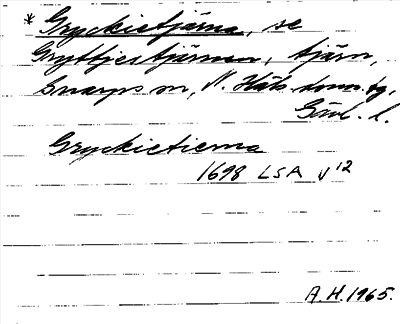 * Gryckietjärna, se
Gryttjestjärnen, tjärn,
Gnarps sn, N. Häls. doms.tg,
Gävl. l.
Gryckietierna
1698 LSA V 12
A.H. 1965.